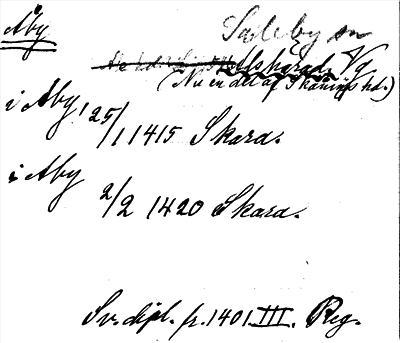 Åby Saleby sn
Vg
(Nu en del af Skånings hd.)
i Aby, 25/1 1415 Skara.
i Aby 2/2 1420 Skara.
Sv. dipl. fr. 1401 III. Reg.